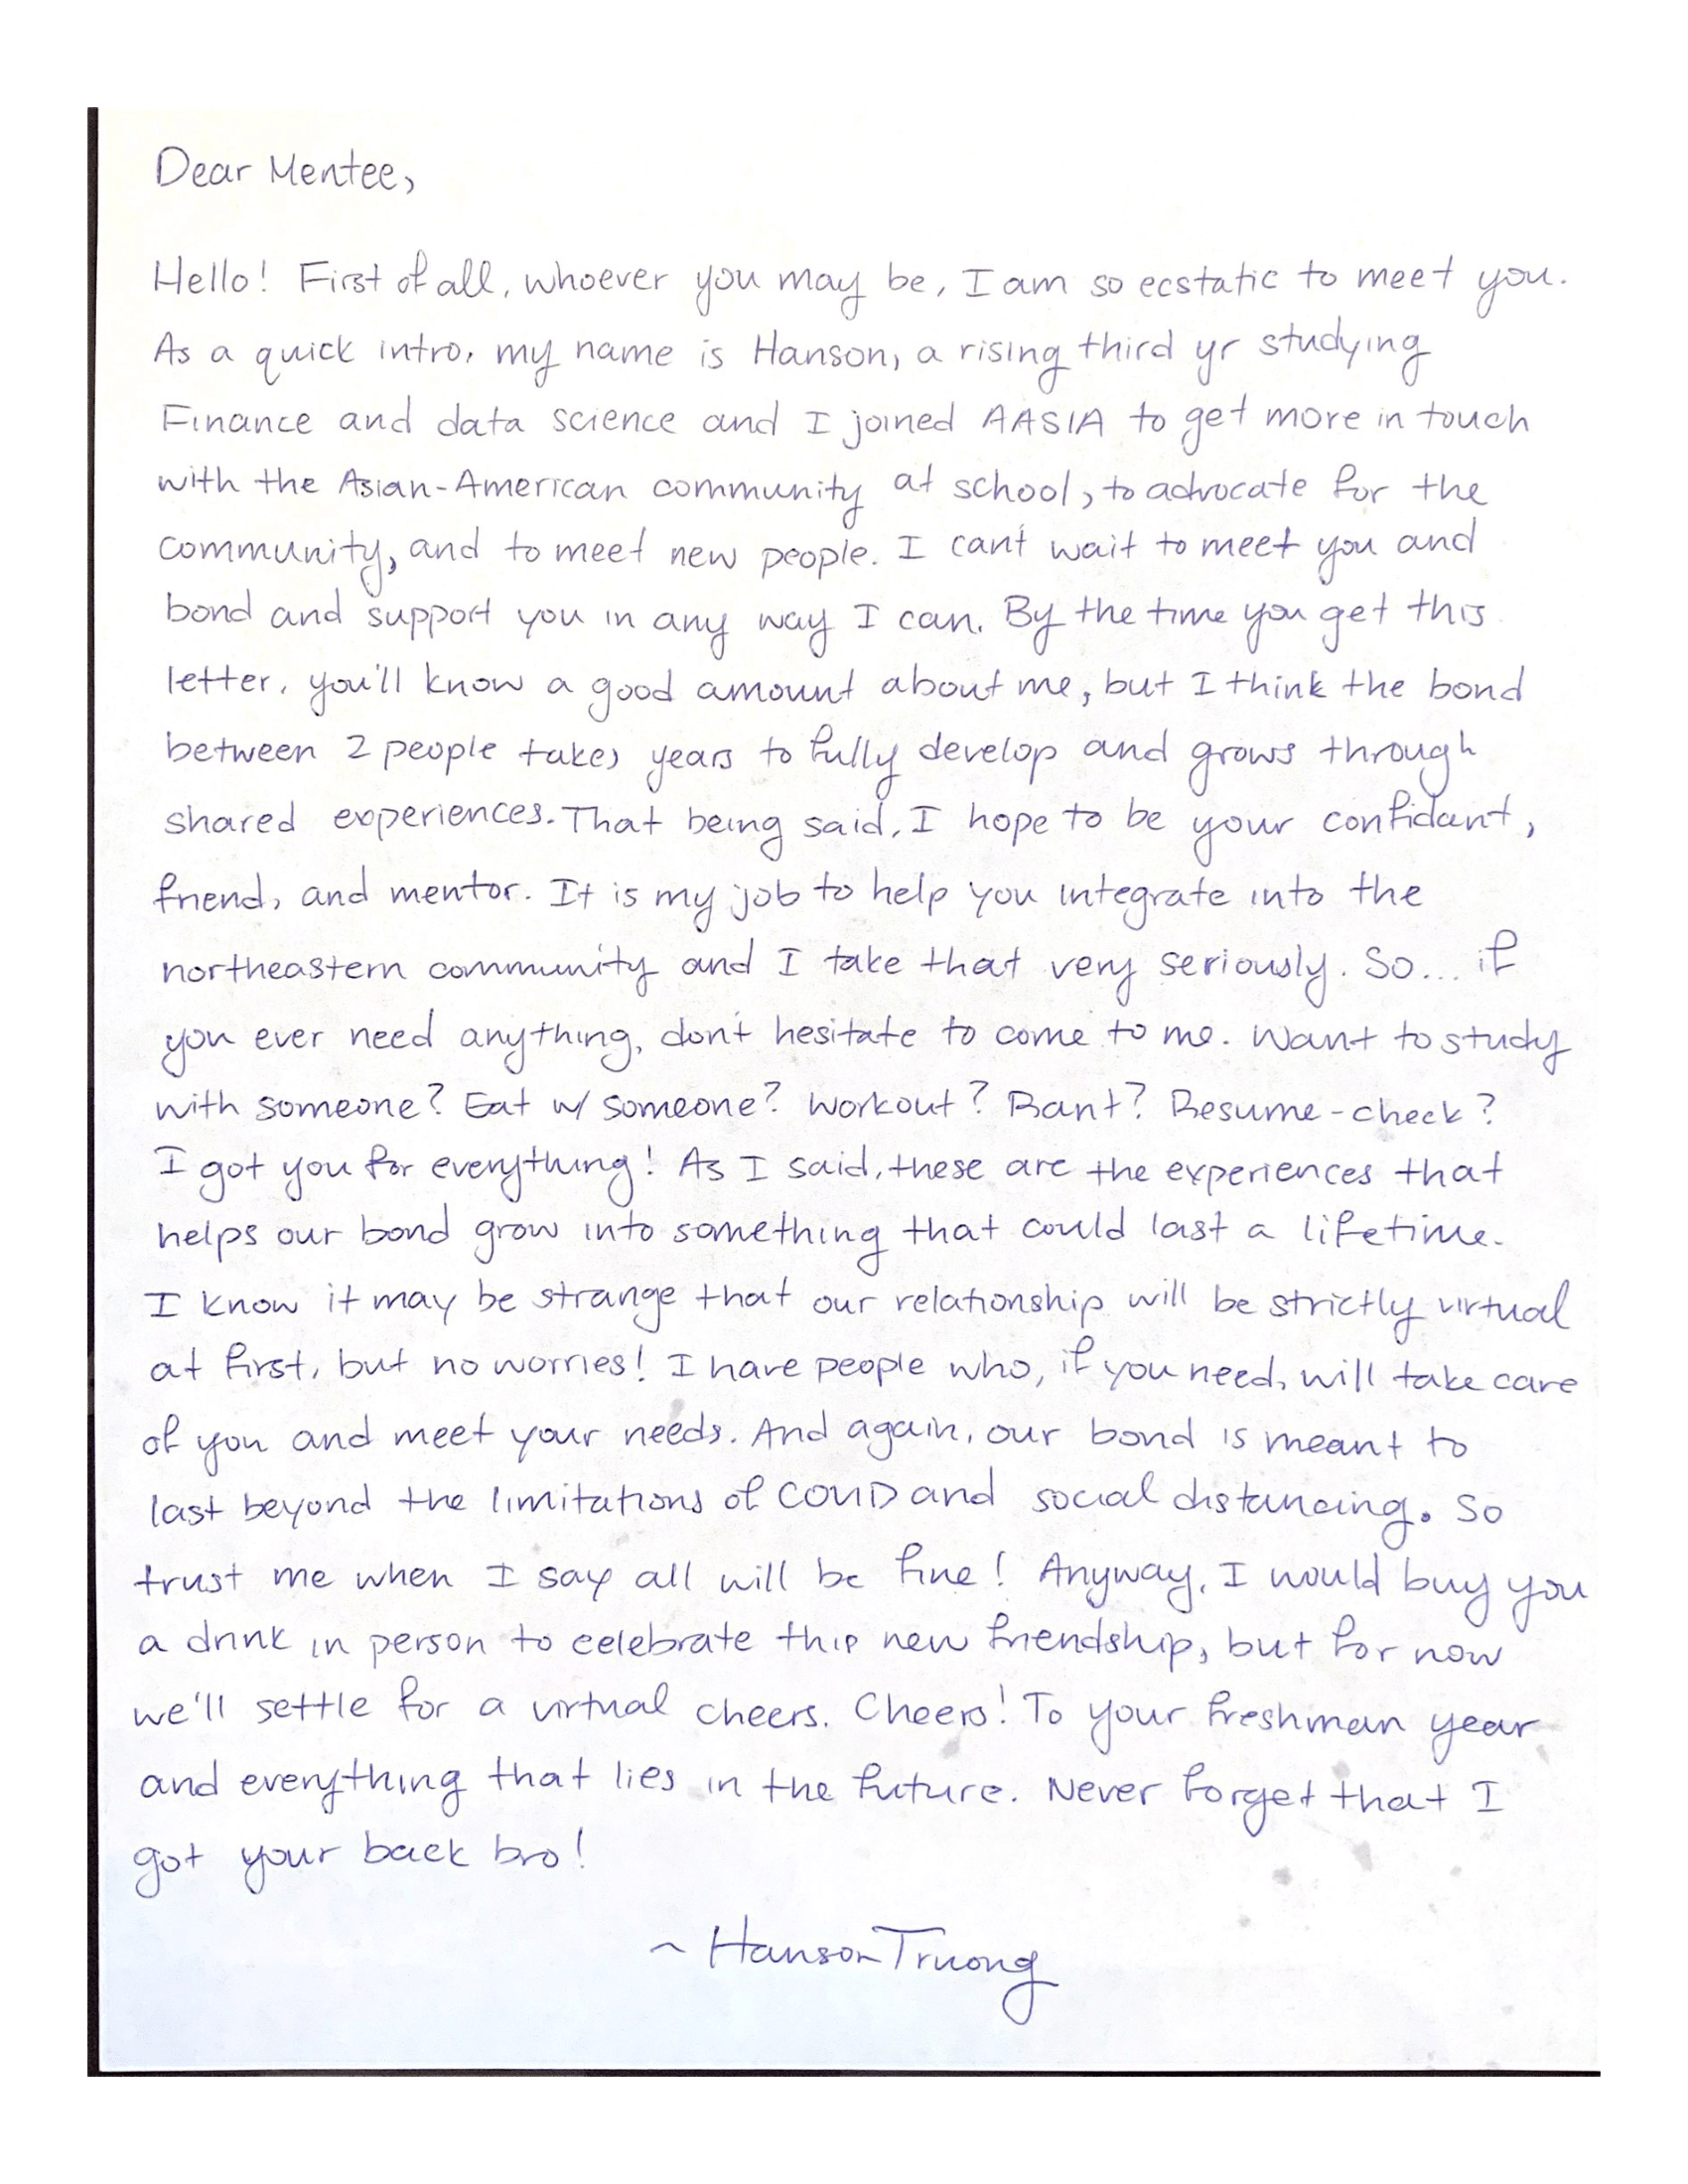 Dear Mentee,
Hello! First of all, whoever you may be, I am so ecstatic to meet you.
As a quick intro, my name is Hanson, a rising third yr studying
Finance and data science and I joined AASIA to get more in touch
with the Asian-American community at school, to advocate for the
community, and to meet new people. I can't wait to meet you and
bond and support you in any way I can. By the time you get this
letter, you'll know a good amount about me, but I think the bond
between 2 people takes years to fully develop and grows through
shared experiences. That being said, I hope to be your confidant,
friend, and mentor. It is my job to help you integrate into the
northeastern community and I take that very seriously. So... if
you ever need anything, don't hesitate to come to me. Want to study
with someone? Eat w/ someone? Workout? Rant? Resume-check?
I got you for everything! As I said, these are the experiences that
helps our bond grow into something that could last a lifetime.
I know it may be strange that our relationship will be strictly virtual
at first, but no worries! I have people who, if you need, will take care
of you and meet your needs. And again, our bond is meant to
last beyond the limitations of COVID and social distancing. So
trust me when I say all will be fine! Anyway, I would buy you
a drink in person to celebrate this new friendship, but for now
we'll settle for a virtual cheers. Cheers! To your freshman year
and everything that lies in the future. Never forget that I
got your back bro!
~ Hanson Truong